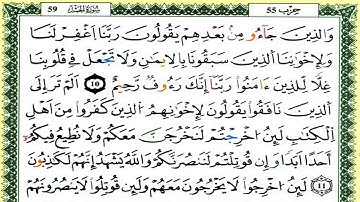 حزب 55 سورة الحشر 59
وَالذِينَ جَآءُو مِنۢ بَعْدِهِمْ يَقُولُونَ رَبَّنَا اَغْفِرْ لَنَا
وَلِإِخْوَٰنِنَا اَلذِينَ سَبَقُونَا بِالِايمَٰنِ وَلَا تَجْعَلْ فِے قُلُوبِنَا
غِلّٗا لِّلذِينَ ءَامَنُواْ رَبَّنَآ إِنَّكَ رَءُوفٞ رَّحِيمٌ 10 اَلَمْ تَرَ إِلَى
اَلذِينَ نَافَقُواْ يَقُولُونَ لِإِخْوَٰنِهِمُ اُلذِينَ كَفَرُواْ مِنَ اَهْلِ
اِلْكِتَٰبِ لَئِنُ ا۟خْرِجْتُمْ لَنَخْرُجَنَّ مَعَكُمْ وَلَا نُطِيعُ فِيكُمُۥٓ
أَحَداً اَبَداٗ وَإِن قُوتِلْتُمْ لَنَنصُرَنَّكُمْ وَاللَّهُ يَشْهَدُ إِنَّهُمْ لَكَٰذِبُونَ
11 لَئِنُ ا۟خْرِجُواْ لَا يَخْرُجُونَ مَعَهُمْ وَلَئِن قُوتِلُواْ لَا يَنصُرُونَهُمْ